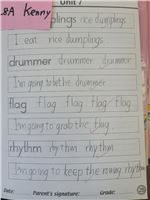 Unit 7
8A Kenny
dumplings rice dumplings
I eat rice dumplings
drummer drummer drummer
I'm going to be the drummer
flag flag flag flag flag
I'm going to grab the flag.
rhythm rhythm rhythm
I'm going to keep the rhythm
Date: Parent's signature: Grade: